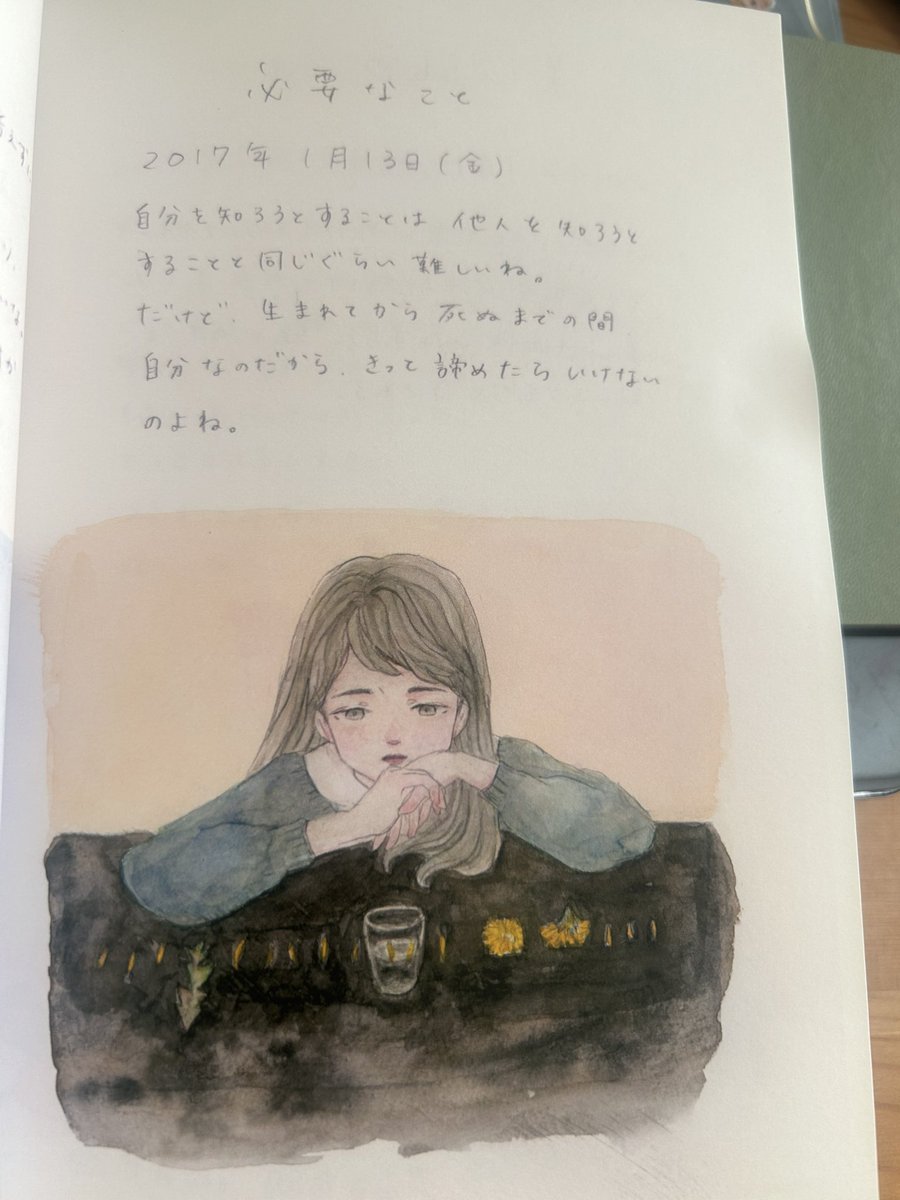 必要なこと
2017年 1月13日(金)
自分を知ろうとすることは 他人を知ろうと
することと同じぐらい 難しいね。
だけど、生まれてから 死ぬまでの間
自分なのだから、きっと 諦めたらいけない
のよね。